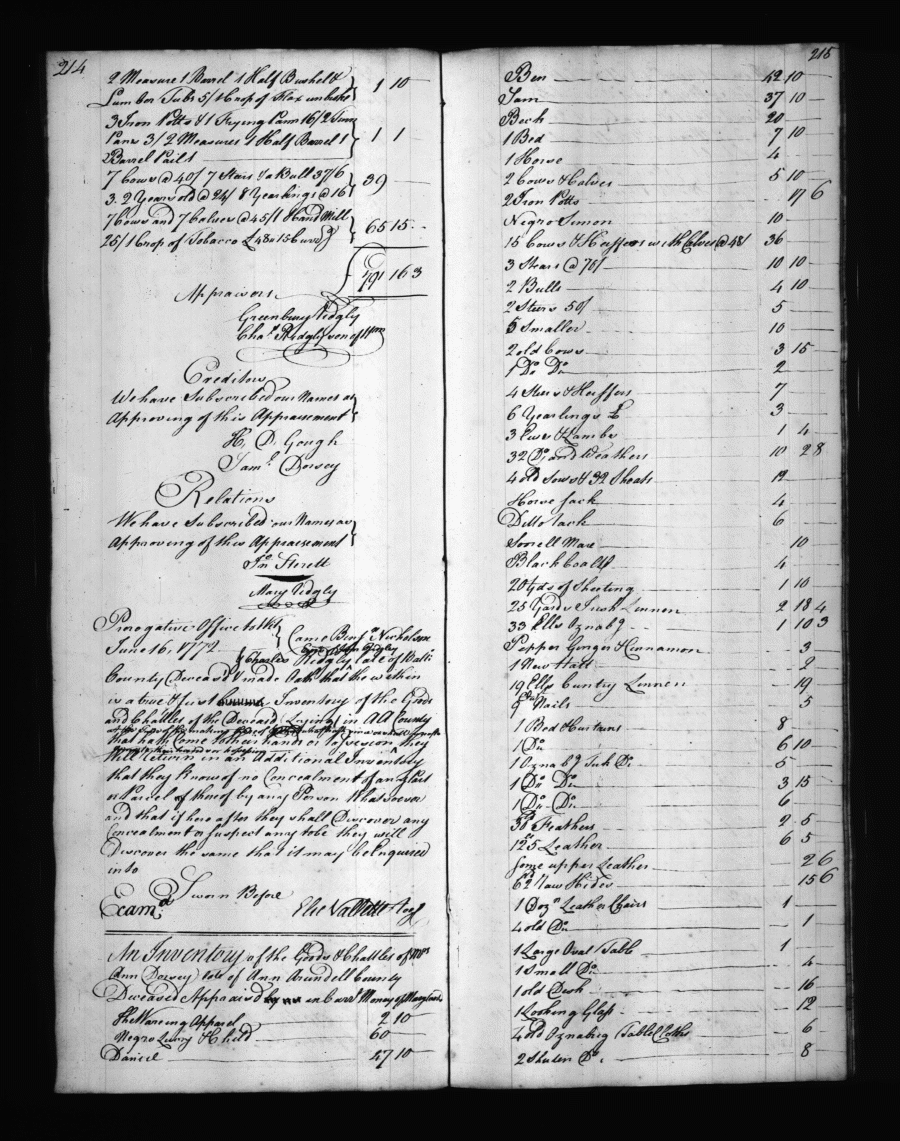 214
2 Measure 1 Barrel 1 Half Bushel &
Lumber Tubs 5/ 1 Crop of Flax unbroke } 1 10 —
3 Iron Potts & 1 Frying Pann 16/2
Pans 3/ 2 Measures 1 Half Barrel 1 } 1 1 —
2 Barrel Pails
7 Cows @ 40/ 7 Stears 1 a Bull 37/6
3. 2 Years old @ 24/ 8 Yearlings @ 16 } 39 —
7 Cows and 7 Calves @ 45/ 1 Hand Mill
25/ 1 Crop of Tobacco £48 " 15 Curr } 65 15 —
791 16 3
Appraisers
Greenbury Ridgly
Chas. Ridgly son of Wm
Creditors
We have Subscribed our Names as
Approving of this Appraisement
H. D. Gough
Saml. Dorsey
Relations
We have Subscribed our Names as
Approving of this Appraisement
Jno Sterett
Mary Ridgly
Prerogative Office to Wit
June 16. 1772 } Came Benja Nicholson
Charles Ridgly late of Balt:
County Deceasd & made Oath that the within
is a true & Just Inventory of the Goods
and Chattles of the Deceasd Lying in AA County
that hath Come to their hands or Posession they
Will return in an Additional Inventory
that they know of no Concealment of any Part
or Parcel of thereof by any Person Whatsoever
and that if hereafter they shall Discover any
Concealment or suspect any to be they will
Discover the same that it may be Enquired
into
Sworn Before
Examd Elie Vallette Regr
An Inventory of the Goods & Chattles of Mrs
Ann Dorsey late of Ann Arundell County
Deceased Appraised in Curr Money of Maryland
The Wareing Apparel 2 10 —
Negro Lucy & Child 60 —
Daniel 47 10 —
215
Ben 42 10 —
Sam 37 10 —
Beck 20 —
1 Bed 7 10
1 Horse 4 —
2 Cows & Calves 5 10 —
2 Iron Potts — 17 6
Negro Simon 10 —
15 Cows & Heiffers with Calves @ 48/ 36 —
3 Stears @ 70/ 10 10 —
2 Bulls 4 10 —
2 Steers 50/ 5 —
5 Smaller 10 —
2 old Cows 3 15 —
1 Do Do 2 —
4 Steers & Heiffers 7
6 Yearlings £ 3 —
3 Ews & Lambs 1 4 —
32 Do and Weathers 10 2 8
4 old Sows & 32 Shoats 12 —
Horse Jack 4 —
Ditto Jack 6 —
Sorrell Mare 10
Black Coalt 4 —
20 Yds of Sheeting 1 10
25 Yards Irish Linnen 2 18 4
33 Ells Oznabg 1 10 3
Pepper Ginger & Cinnamon — 3 —
1 New Hatt — 2 —
19 Ells Cuntry Linnen — 19 —
9 Nails — 5
1 Bed & Curtans 8 —
1 Do 6 10 —
1 Oznabg Tick Do 5 —
1 Do Do 3 15
1 Do Do 6 —
Feathers 2 5 —
125 Leather 6 5
Some upper Leather — 2 6
62 Raw Hides — 15 6
1 Dozn Leather Chairs 1 —
4 old Do — 1
1 Large Oval Table 1 —
1 Small Do — 4
1 old Desk — 16
1 Looking Glass — 12
4 old Oznabrig Table Cloths — 6
2 Do — 8 —